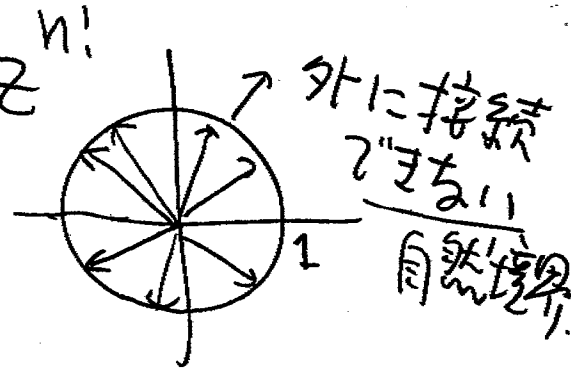 z^{n!}
外に接続
できない
自然境界.
1